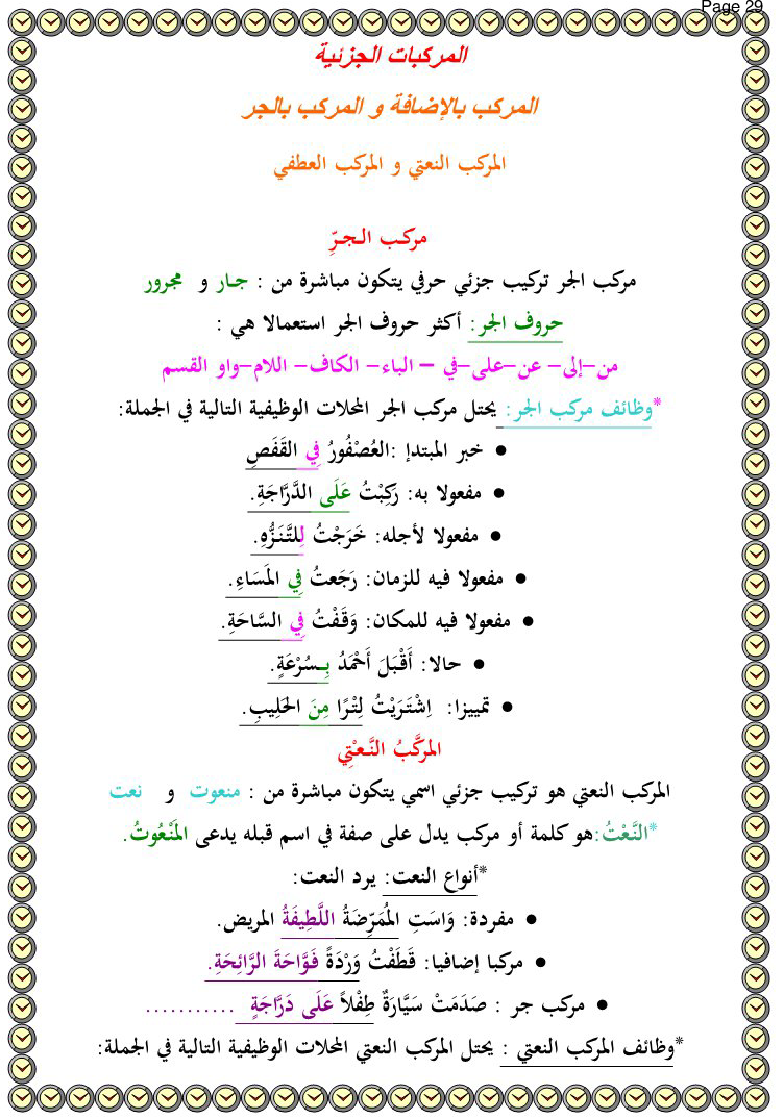 Page 29
المركبات الجزئية
المركب بالإضافة و المركب بالجر
المركب النعتي و المركب العطفي
مركب الجرِّ
مركب الجر تركيب جزئي حرفي يتكون مباشرة من : جار و مجرور
حروف الجر: أكثر حروف الجر استعمالا هي :
من-إلى- عن-على-في – الباء- الكاف- اللام-واو القسم
*وظائف مركب الجر: يحتل مركب الجر المحلات الوظيفية التالية في الجملة:
• خبر المبتدإ :العُصْفُورُ فِي القَفَصِ
• مفعولا به: رَكِبْتُ عَلَى الدَّرَّاجَةِ.
• مفعولا لأجله: خَرَجْتُ لِلتَّنَزُّهِ.
• مفعولا فيه للزمان: رَجَعتُ فِي المَسَاءِ.
• مفعولا فيه للمكان: وَقَفْتُ فِي السَّاحَةِ.
• حالا: أَقْبَلَ أَحْمَدُ بِسُرْعَةٍ.
• تمييزا: اِشْتَرَيْتُ لِتْرًا مِنَ الحَلِيبِ.
المركَّبُ النَّعْتِي
المركب النعتي هو تركيب جزئي اسمي يتكون مباشرة من : منعوت و نعت
*النَّعْتُ:هو كلمة أو مركب يدل على صفة في اسم قبله يدعى المَنْعُوتُ.
*أنواع النعت: يرد النعت:
• مفردة: وَاسَتِ المُمَرِّضَةُ اللَّطِيفَةُ المريض.
• مركبا إضافيا: قَطَفْتُ وَرْدَةً فَوَّاحَةَ الرَّائِحَةِ.
• مركب جر : صَدَمَتْ سَيَّارَةٌ طِفْلاً عَلَى دَرَّاجَةٍ ...........
*وظائف المركب النعتي : يحتل المركب النعتي المحلات الوظيفية التالية في الجملة: